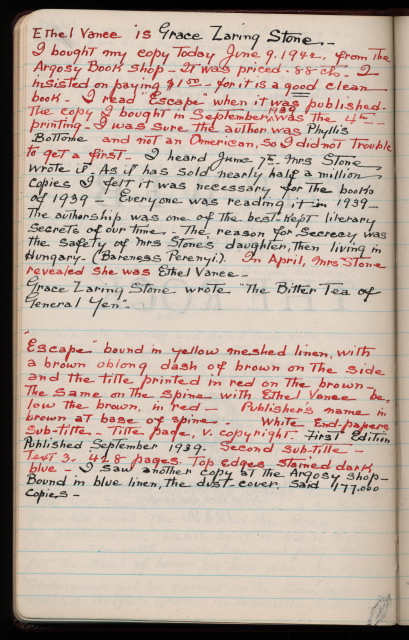 Ethel Vance is Grace Zaring Stone.-
I bought my copy Today June 9. 1942, from The
Argosy Book Shop - It was priced .88 cts. I
insisted on paying $1.50 - for it is a good clean
book - I read "Escape" when it was published -
The copy I bought in September, 1939 was the 4th -
printing - I was sure the author was Phyllis
Bottome and not an American, so I did not Trouble
to get a first - I heard June 7th Mrs Stone
wrote it. As it has sold nearly half a million
copies I felt it was necessary for the books
of 1939 - Everyone was reading it in 1939 -
The authorship was one of the best-kept literary
secrets of our time - "The reason for secrecy was
the safety of Mrs Stone's daughter, then living in
Hungary - (Baroness Perenyi)." In April, Mrs Stone
revealed she was Ethel Vance -
Grace Zaring Stone wrote "The Bitter Tea of
General Yen"-
"Escape" bound in yellow meshed linen, with
a brown oblong dash of brown on the side
and the title printed in red on the brown -
The same on the spine with Ethel Vance be-
low the brown, in red - Publisher's name in
brown at base of spine. - White End-papers
Sub-title - Title page, v. copyright - First Edition
Published September 1939 - Second sub-title -
Text 3 - 428 pages. Top edges stained dark
blue - I saw another copy at the Argosy shop -
Bound in blue linen, the dust cover, said 177,000
copies -